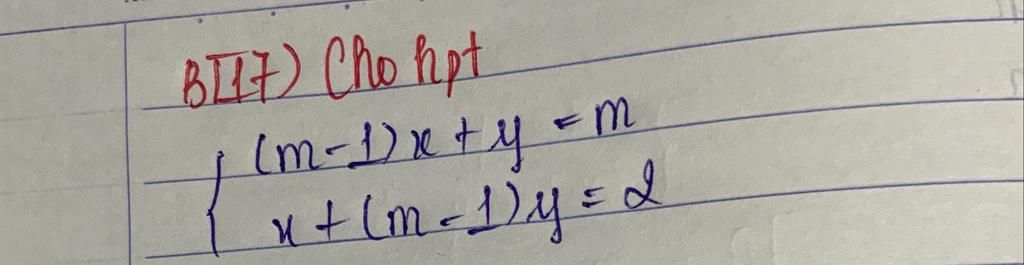 BT17) Cho hpt
(m-1)x + y = m
x + (m-1)y = 2